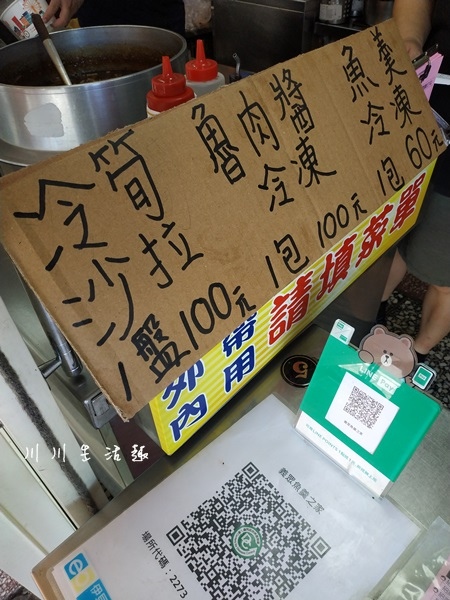 冷筍
沙拉
1盤100元
魯肉醬
冷凍
1包100元
魚羹
冷凍
1包60元
外帶
內用
請填菜單
川川生活趣
義珉魚羹之家
場所代碼：2273